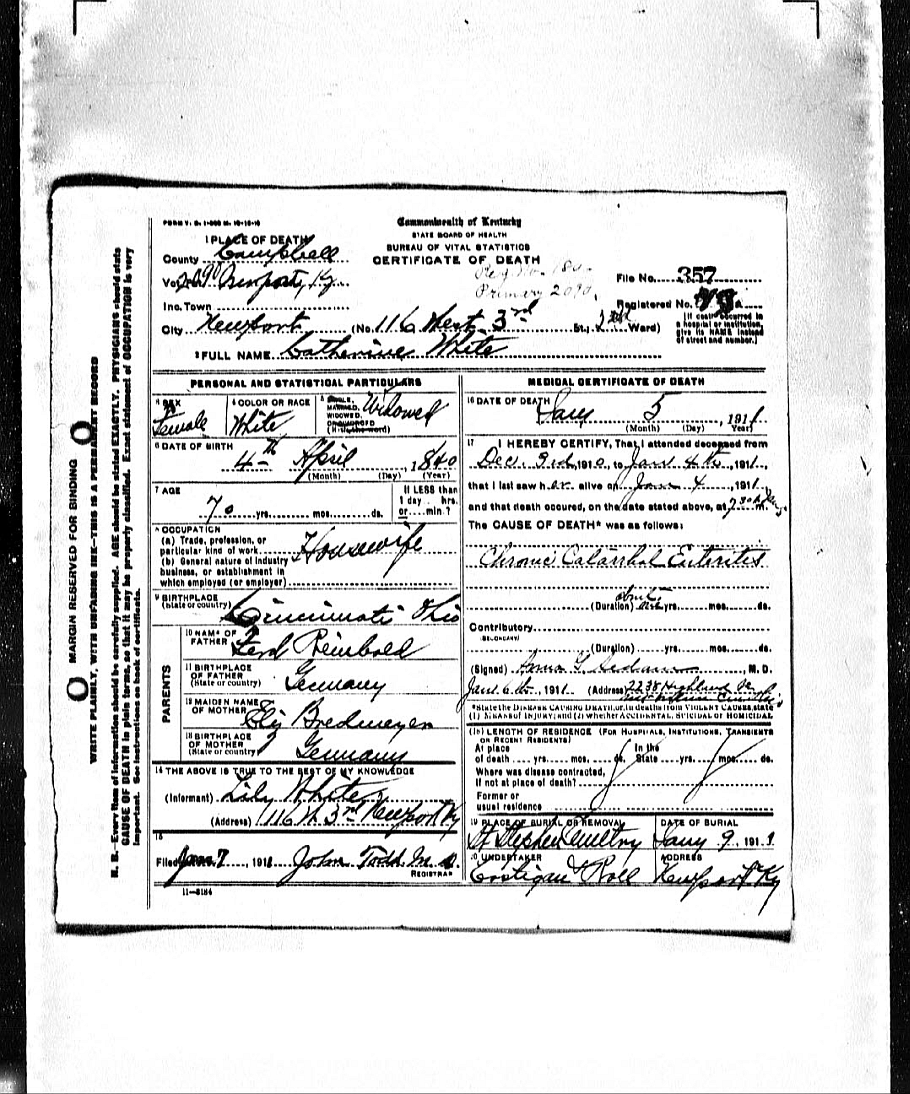 FORM V. S. 1-
Commonwealth of Kentucky
STATE BOARD OF HEALTH
BUREAU OF VITAL STATISTICS
CERTIFICATE OF DEATH
1 PLACE OF DEATH
County Campbell
2090 Newport, Ky.
Reg. No. 180
Primary 2090.
File No. 357
Inc. Town
Registered No.
City Newport (No. 116 West 3rd St., Ward)
[If death occurred in
a hospital or institution,
give its NAME instead
of street and number.]
2 FULL NAME Catherine White
PERSONAL AND STATISTICAL PARTICULARS
3 SEX
Female
4 COLOR OR RACE
White
5 SINGLE,
MARRIED,
WIDOWED,
OR DIVORCED
(Write the word)
Widowed
6 DATE OF BIRTH
4th April, 1840
(Month) (Day) (Year)
7 AGE
70 yrs. mos. ds.
If LESS than
1 day hrs.
or min.?
8 OCCUPATION
(a) Trade, profession, or
particular kind of work Housewife
(b) General nature of industry
business, or establishment in
which employed (or employer)
9 BIRTHPLACE
(State or country)
Cincinnati Ohio
PARENTS
10 NAME OF
FATHER Ferd Reinbold
11 BIRTHPLACE
OF FATHER
(State or country) Germany
12 MAIDEN NAME
OF MOTHER Eliz Bredmeyer
13 BIRTHPLACE
OF MOTHER
(State or country) Germany
14 THE ABOVE IS TRUE TO THE BEST OF MY KNOWLEDGE
(Informant) Lily White
(Address) 116 W 3rd Newport Ky
15
Filed Jan. 7, 1911 John Todd M.D.
REGISTRAR
11—5184
MEDICAL CERTIFICATE OF DEATH
16 DATE OF DEATH
Jany 5, 1911
(Month) (Day) (Year)
17 I HEREBY CERTIFY, That I attended deceased from
Dec. 3rd, 1910, to Jan 4th, 1911,
that I last saw her alive on Jan 4, 1911
and that death occured, on the date stated above, at m.
The CAUSE OF DEATH* was as follows:
Chronic Catarrhal Enteritis
(Duration) yrs. mos. ds.
Contributory
(SECONDARY)
(Duration) yrs. mos. ds.
(Signed) M. D.
Jan. 6th, 1911 (Address) 2238 Highland
*State the DISEASE CAUSING DEATH, or, in deaths from VIOLENT CAUSES, state
(1) MEANS OF INJURY; and (2) whether ACCIDENTAL, SUICIDAL or HOMICIDAL
(18) LENGTH OF RESIDENCE (FOR HOSPITALS, INSTITUTIONS, TRANSIENTS
OR RECENT RESIDENTS)
At place In the
of death yrs. mos. ds. State yrs. mos. ds.
Where was disease contracted,
if not at place of death?
Former or
usual residence
19 PLACE OF BURIAL OR REMOVAL
St Stephen Cemetry
DATE OF BURIAL
Jany 9, 1911
20 UNDERTAKER
Costigan & Roll
ADDRESS
Newport Ky
MARGIN RESERVED FOR BINDING
WRITE PLAINLY, WITH UNFADING INK—THIS IS A PERMANENT RECORD
N. B.—Every item of information should be carefully supplied. AGE should be stated EXACTLY. PHYSICIANS should state
CAUSE OF DEATH in plain terms, so that it may be properly classified. Exact statement of OCCUPATION is very
important. See instructions on back of certificate.